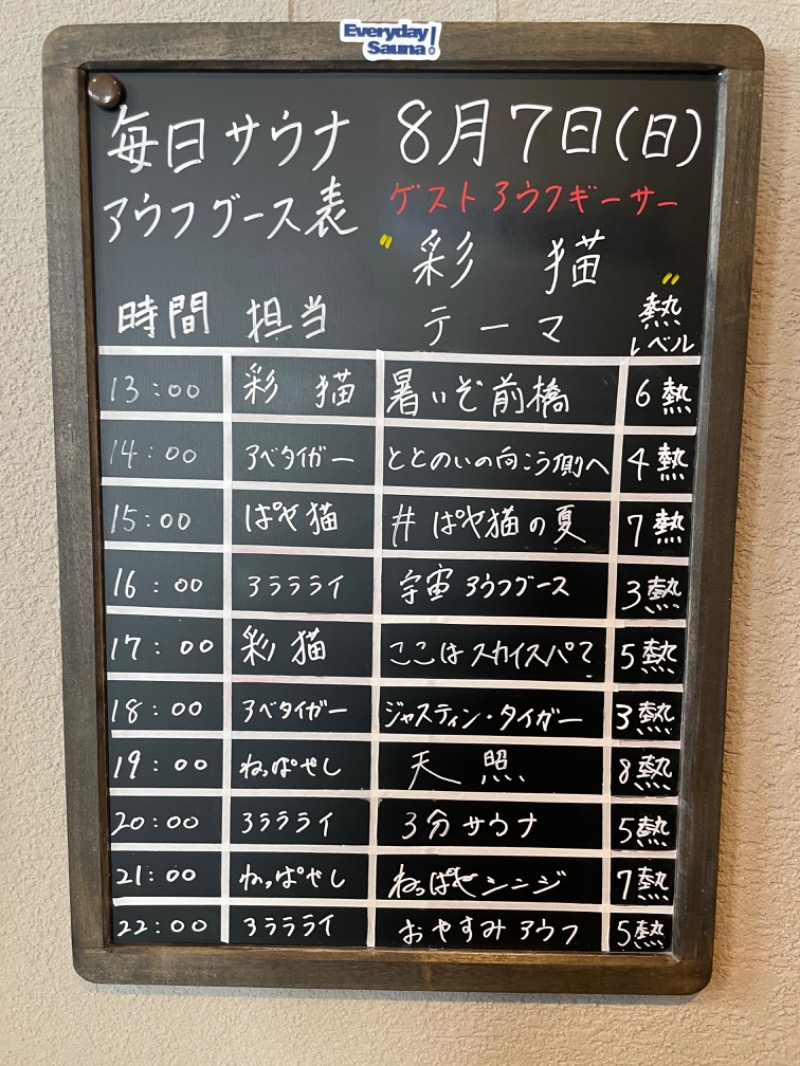 Everyday
Sauna!
毎日サウナ 8月7日(日)
アウフグース表 ゲストアウフギーサー
"彩 猫"
時間 担当 テーマ 熱レベル
13:00 彩 猫 暑いぞ前橋 6熱
14:00 アベタイガー ととのいの向こう側へ 4熱
15:00 ぱや猫 #ぱや猫の夏 7熱
16:00 3ラララライ 宇宙アウフグース 3熱
17:00 彩 猫 ここはスカイスパ? 5熱
18:00 アベタイガー ジャスティン・タイガー 3熱
19:00 ねっぱやし 天照 8熱
20:00 3ララライ 3分サウナ 5熱
21:00 ねっぱやし ねっぱやシンジ 7熱
22:00 3ララライ おやすみアウフ 5熱